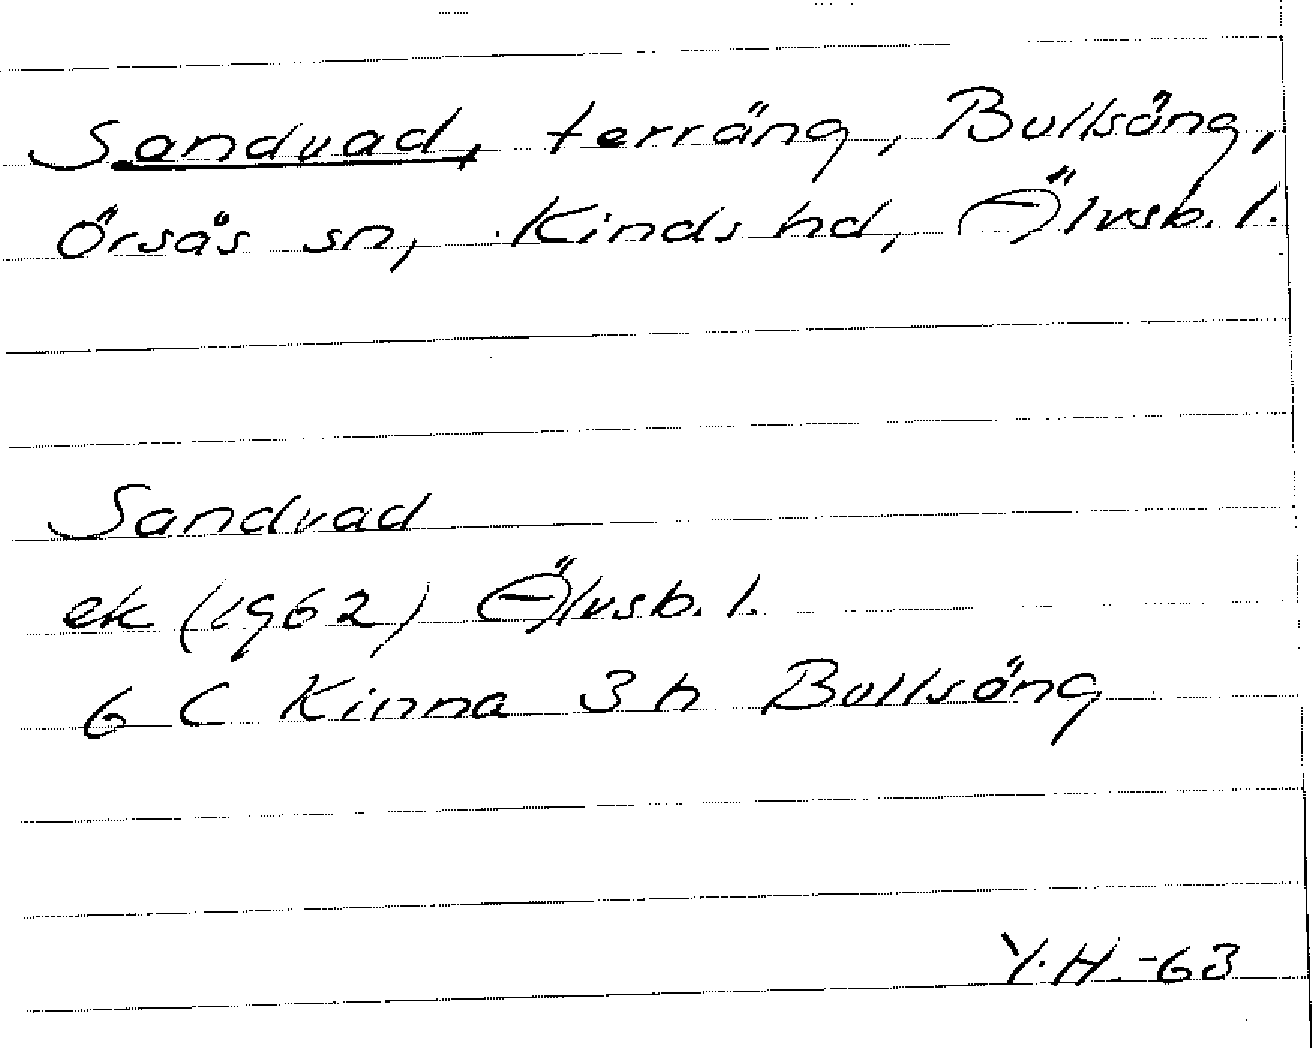 Sandvad, terräng, Bullsäng,
Örsås sn, Kinds hd, Älvsb. l.
Sandvad
ek (1962) Älvsb. l.
6 C Kinna 3 h Bullsäng
Y. H. -63